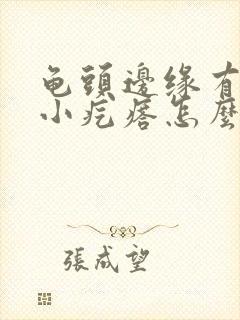 龟頭邊缘有
小疙瘩怎麼
張成望